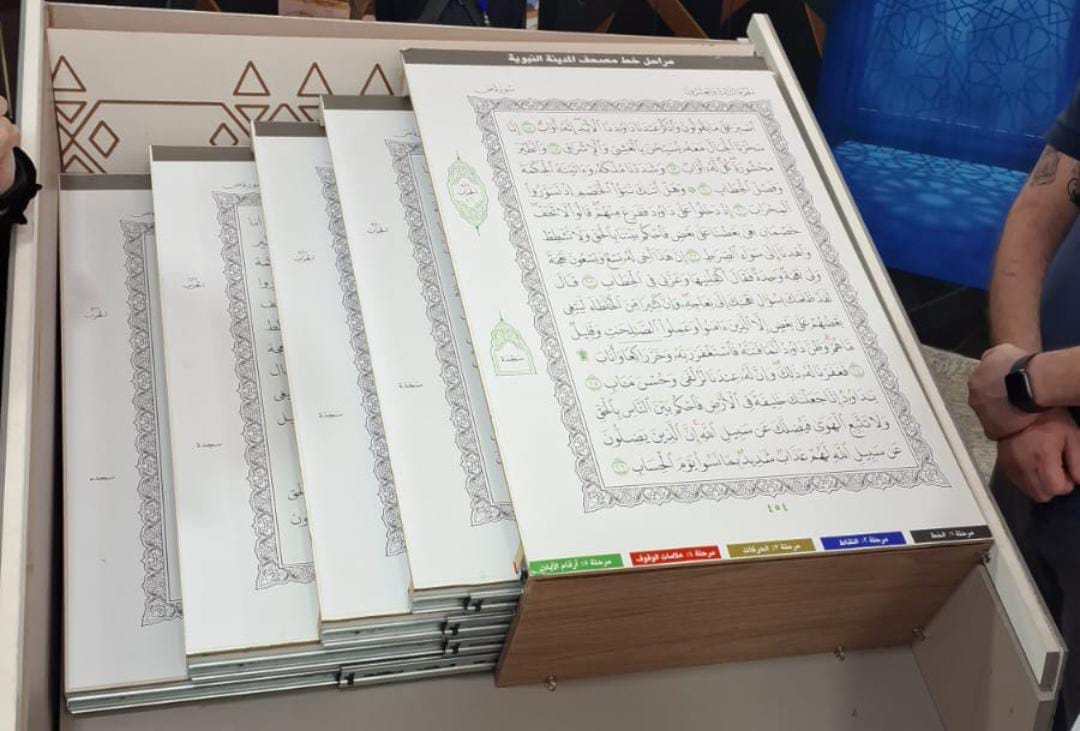 مراحل خط مصحف المدينة النبوية
الجزء الثالث والعشرون
سورة ص
اصْبِرْ عَلَىٰ مَا يَقُولُونَ وَاذْكُرْ عَبْدَنَا دَاوُودَ ذَا الْأَيْدِ إِنَّهُ أَوَّابٌ ١٧ إِنَّا
سَخَّرْنَا الْجِبَالَ مَعَهُ يُسَبِّحْنَ بِالْعَشِيِّ وَالْإِشْرَاقِ ١٨ وَالطَّيْرَ
مَحْشُورَةً كُلٌّ لَهُ أَوَّابٌ ١٩ وَشَدَدْنَا مُلْكَهُ وَآتَيْنَاهُ الْحِكْمَةَ
وَفَصْلَ الْخِطَابِ ٢٠ ۞ وَهَلْ أَتَاكَ نَبَأُ الْخَصْمِ إِذْ تَسَوَّرُوا
الْمِحْرَابَ ٢١ إِذْ دَخَلُوا عَلَىٰ دَاوُودَ فَفَزِعَ مِنْهُمْ قَالُوا لَا تَخَفْ
خَصْمَانِ بَغَىٰ بَعْضُنَا عَلَىٰ بَعْضٍ فَاحْكُمْ بَيْنَنَا بِالْحَقِّ وَلَا تُشْطِطْ
وَاهْدِنَا إِلَىٰ سَوَاءِ الصِّرَاطِ ٢٢ إِنَّ هَٰذَا أَخِي لَهُ تِسْعٌ وَتِسْعُونَ نَعْجَةً
وَلِيَ نَعْجَةٌ وَاحِدَةٌ فَقَالَ أَكْفِلْنِيهَا وَعَزَّنِي فِي الْخِطَابِ ٢٣ قَالَ
لَقَدْ ظَلَمَكَ بِسُؤَالِ نَعْجَتِكَ إِلَىٰ نِعَاجِهِ وَإِنَّ كَثِيرًا مِنَ الْخُلَطَاءِ لَيَبْغِي
بَعْضُهُمْ عَلَىٰ بَعْضٍ إِلَّا الَّذِينَ آمَنُوا وَعَمِلُوا الصَّالِحَاتِ وَقَلِيلٌ
مَا هُمْ وَظَنَّ دَاوُودُ أَنَّمَا فَتَنَّاهُ فَاسْتَغْفَرَ رَبَّهُ وَخَرَّ رَاكِعًا وَأَنَابَ ۩
٢٤ فَغَفَرْنَا لَهُ ذَٰلِكَ وَإِنَّ لَهُ عِنْدَنَا لَزُلْفَىٰ وَحُسْنَ مَآبٍ ٢٥
يَا دَاوُودُ إِنَّا جَعَلْنَاكَ خَلِيفَةً فِي الْأَرْضِ فَاحْكُمْ بَيْنَ النَّاسِ بِالْحَقِّ
وَلَا تَتَّبِعِ الْهَوَىٰ فَيُضِلَّكَ عَنْ سَبِيلِ اللَّهِ إِنَّ الَّذِينَ يَضِلُّونَ
عَنْ سَبِيلِ اللَّهِ لَهُمْ عَذَابٌ شَدِيدٌ بِمَا نَسُوا يَوْمَ الْحِسَابِ ٢٦
سجدة
٤٥٤
مرحلة ١: الخط
مرحلة ٢: النقاط
مرحلة ٣: الحركات
مرحلة ٤: علامات الوقوف
مرحلة ٥: أرقام الآيات
سجدة
سجدة
سجدة